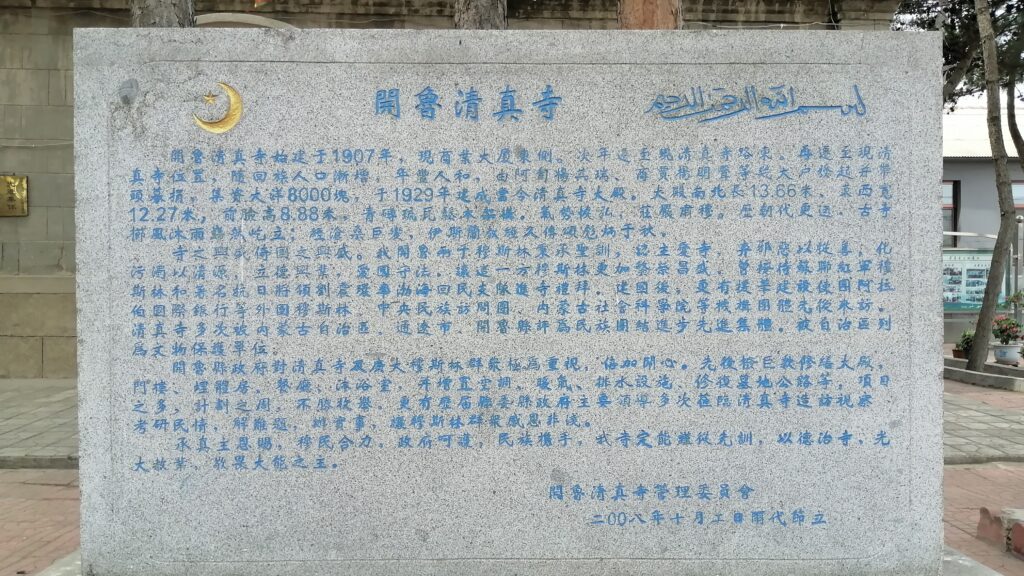 開魯清真寺
بسم الله الرحمن الرحيم
開魯清真寺始建于1907年，現百業大廈東側。次年遷至現清真寺路東。再遷至現清
真寺位置，隨回族人口漸增，年豐人和，由阿訇楊兵瑞、首貢楊明萱等從大戶發起并帶
頭募捐，集資大洋8000塊，于1929年建成當今清真寺大殿。大殿南北長13.66米、東西寬
12.27米，前臉高8.88米，青磚琉瓦磚木結構。氣勢恢弘，莊嚴肅穆。歷朝代更迭，古寺
寺之興或傳國之興盛。我開魯兩千穆斯林秉承聖訓，認主愛寺，棄邪惡以從善，化
污濁以清源，立德興業，愛國守法，
斯林和著名抗日將領劉震環率渤海回民支隊進寺禮拜。建國後，更有援華建設使團阿拉
伯國際銀行等外國穆斯林、中央民族訪問團、内蒙古社會科學院等機構團體先後來訪。
清真寺多次被内蒙古自治區、通遼市、開魯縣評爲民族團結進步先進集體。被自治區列
爲文物保護單位。
開魯縣政府對清真寺及廣大穆斯林群衆極爲重視，倍加關心。先後撥巨款修繕大殿、
門樓、埋體房、餐廳、沐浴室，并增置空調、暖氣、排水設施、修復墓地公路等，項目
之多，計劃之周，不勝枚舉。更有歷屆縣委縣政府主要領導多次蒞臨清真寺造訪視察
考研民情，解難題，辦實事，讓穆斯林群衆感恩非淺。
承真主恩賜，穆民合力，政府呵護，民族攜手，我寺定能繼從先訓，以德治寺，光
大教業，
開魯清真寺管理委員會
二00八年十月